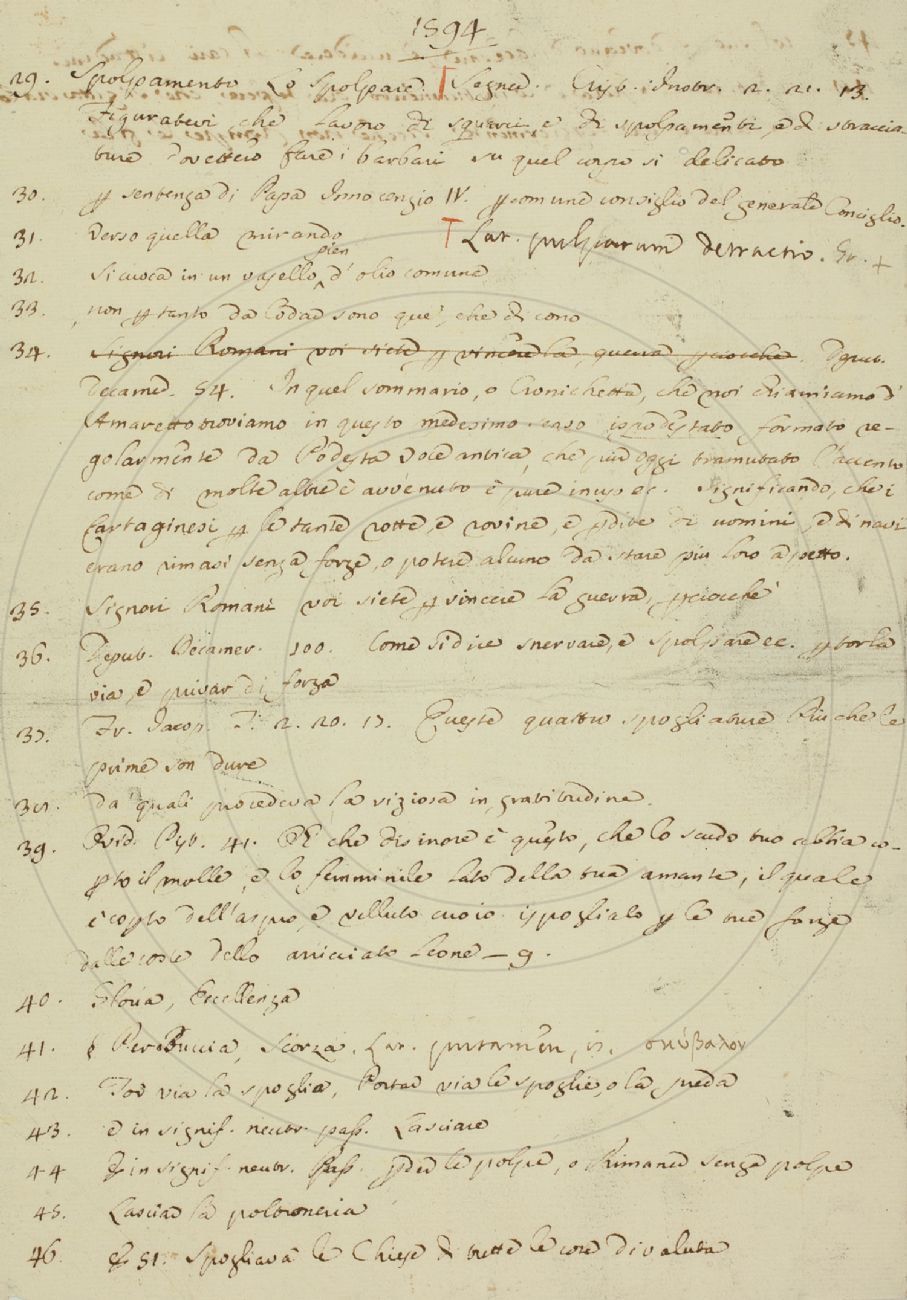 1594
29. Spolpamento Lo Spolpare. T Segner. Crist. Instr. 2. 21. 13.
Figuratevi che lavoro di squarci e di spolpamenti, e di straccia-
ture dovettero fare i barbari su quel corpo sì delicato
30. p sentenza di Papa Innocenzio IV. p comune consiglio del generale Conciglio.
31. verso quella mirando
T Lat. pulparum detractio. Gr. +
32. Si cuoca in un vasello pien d' olio comune
33. non p tanto da lodar sono que', che dicono
34. Signori Romani voi siete p vincere la guerra pciocchè. Deput.
Decamer. 54. In quel sommario, o Cronichetta, che noi chiamiamo d'
Amaretto troviamo in questo medesimo caso ispodestato formato re-
golarmente da Podesta voce antica, che più oggi tramutato l'accento
come di molte altre è avvenuto è pure in uso ec. Significando, che i
Cartaginesi p le tante rotte, e rovine, e pdite di uomini, e di navi
erano rimasi senza forze, o potere alcuno da stare più loro a petto.
35. Signori Romani voi siete p vincere la guerra, pciocchè
36. Deput. Decamer. 100. Come si dice snervare, e spolpare ec. p torla
via, e privar di forza
37. Fr. Jacop. T. 2. 20. 17. Queste quattro spogliature Più che le
prime son dure
38. da' quali procedeva la viziosa ingratitudine.
39. Ovid. Pist. 41. Oh che disinore è questo, che lo scudo tuo abbia co-
pto il molle, e lo femminile lato della tua amante, il quale
è copto dell'aspro, e velluto cuoio ispogliato p le tue forze
dalle coste dello arricciato Leone — g.
40. Gloria, Eccellenza
41. Per Buccia, Scorza. Lat. putamen, is. σκύβαλον
42. Tor via la spoglia, Portar via le spoglie, o la preda
43. e in signif. neutr. pass. Lasciare
44 in signif. neutr. Pass. pder le polpe, o Rimaner senza polpe
45. Lasciar la poltroneria
46. 51. Spogliava le Chiese di tutte le cose di valuta